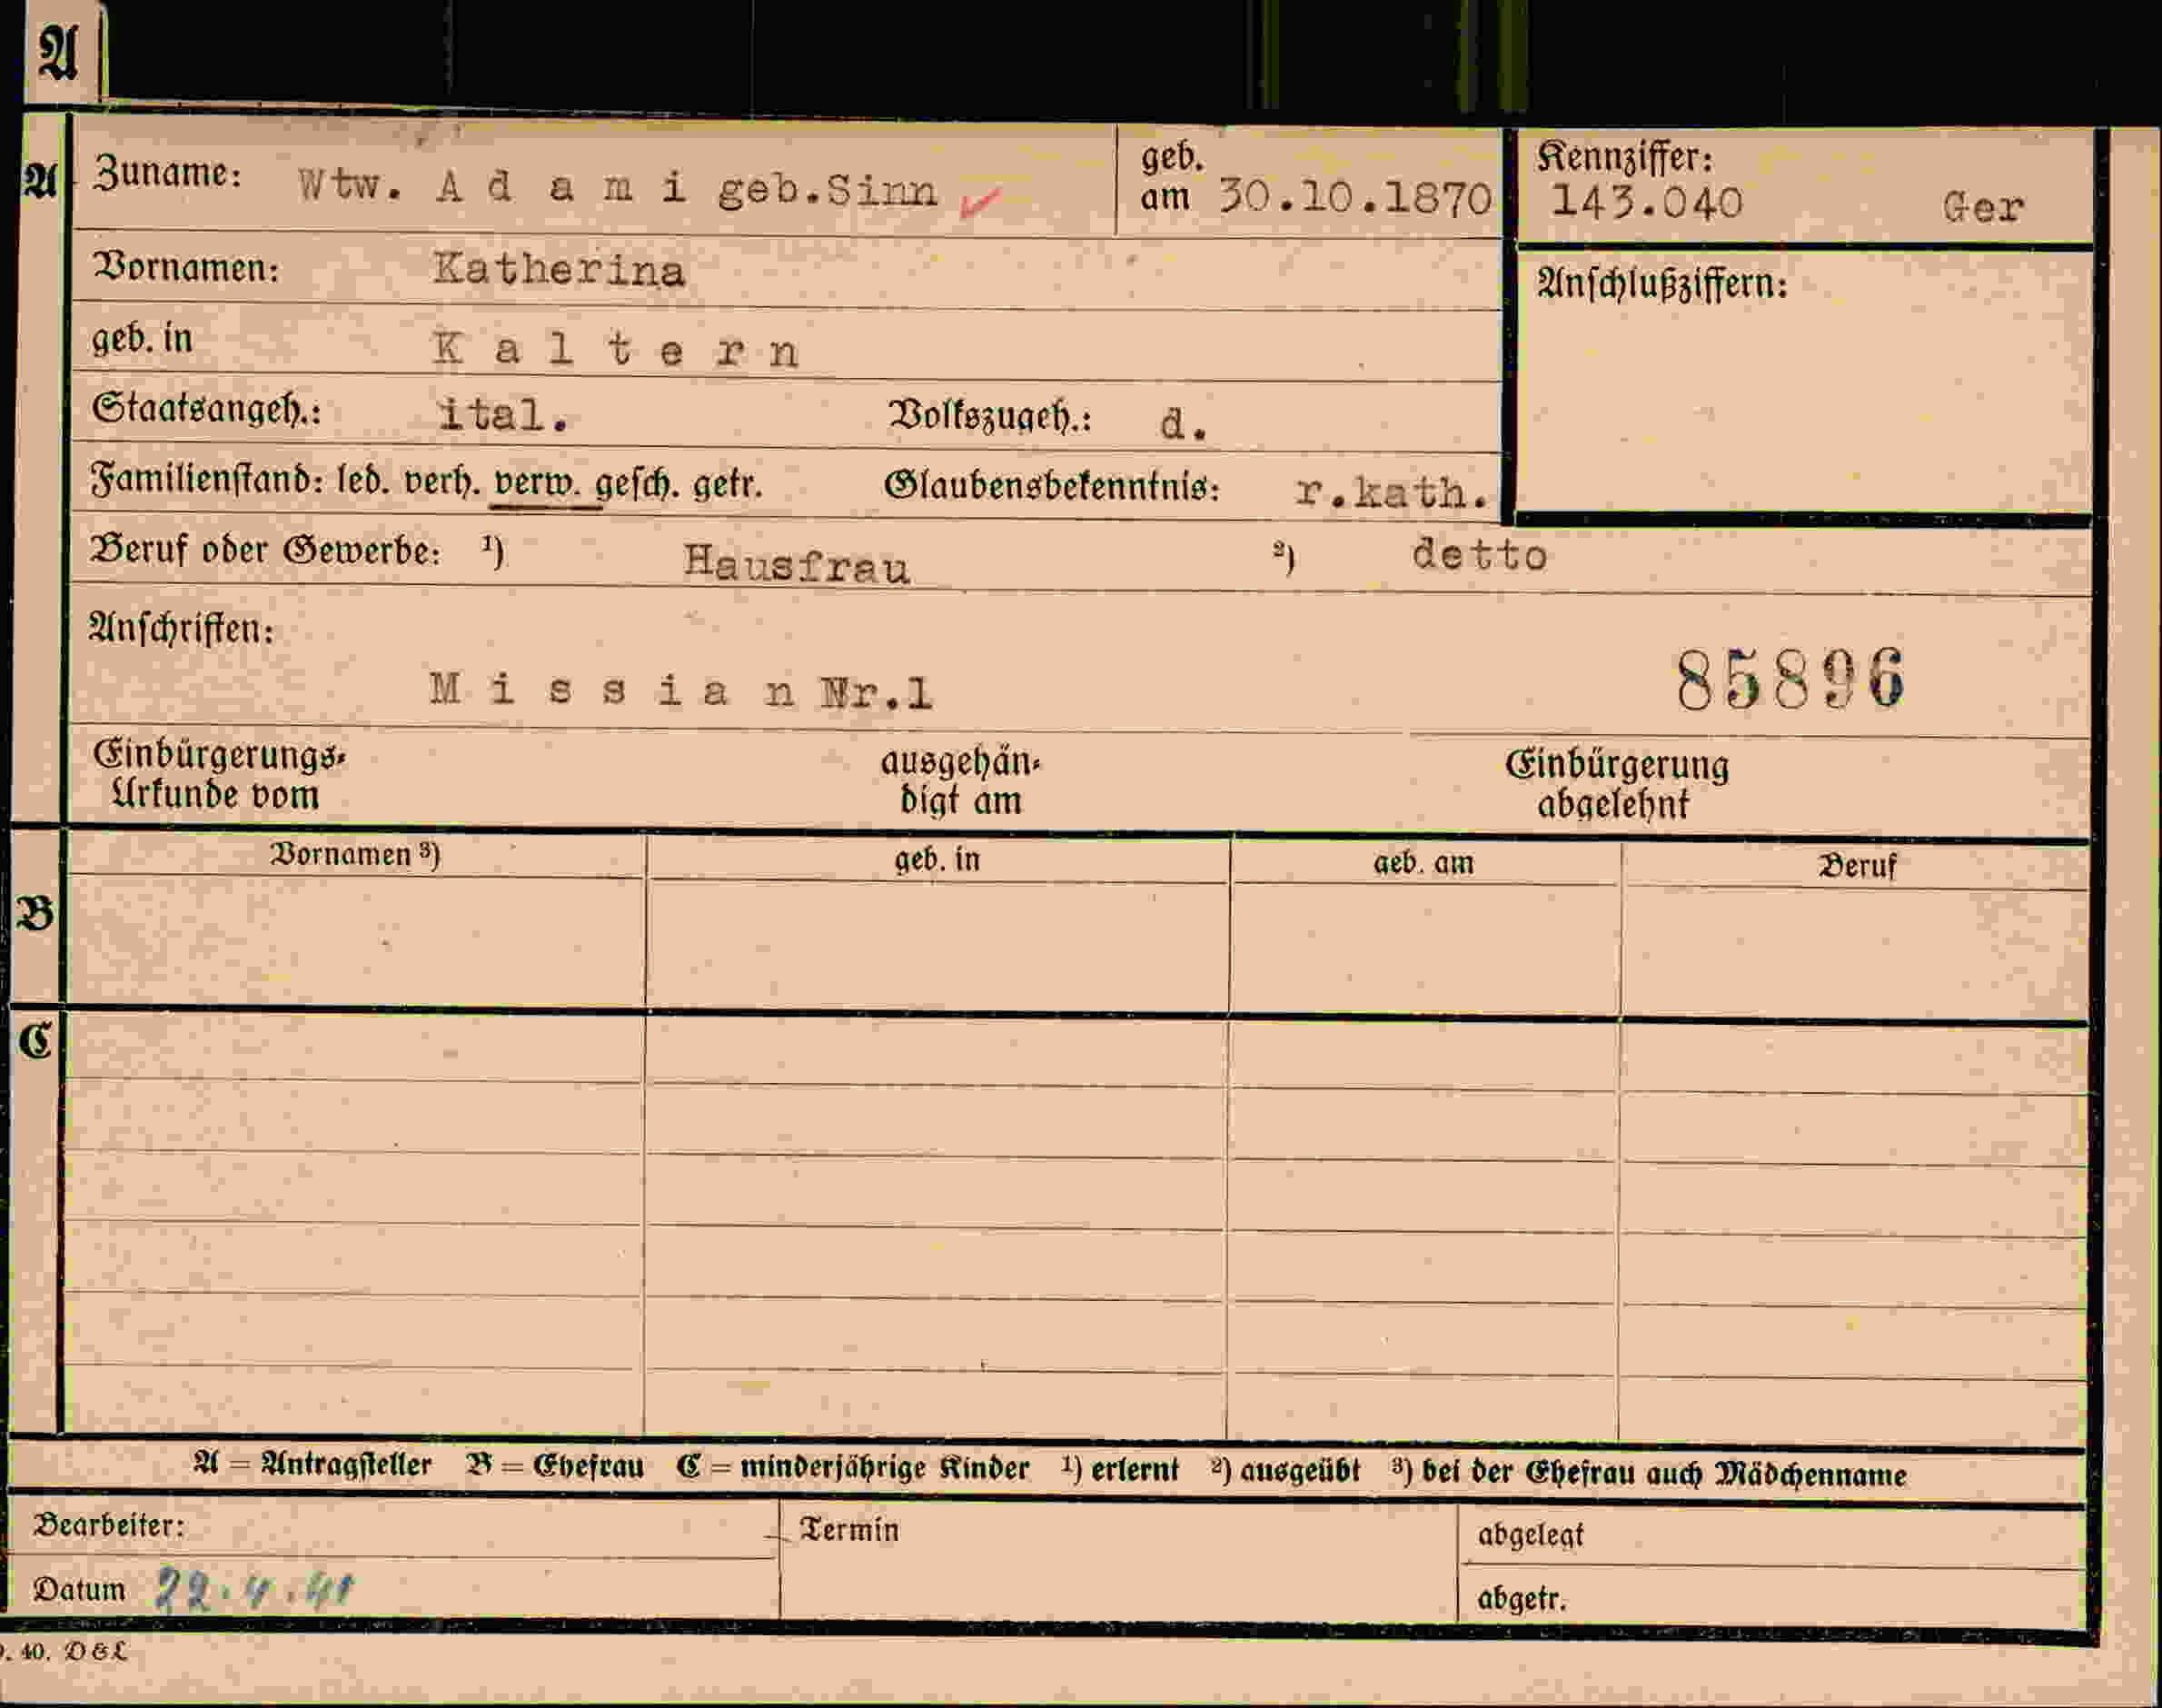 A
A Zuname: Wtw. A d a m i geb.Sinn geb. am 30.10.1870 Kennziffer: 143.040 Ger
Vornamen: Katherina Anschlußziffern:
geb. in K a l t e r n
Staatsangeh.: ital. Volkszugeh.: d.
Familienstand: led. verh. verw. gesch. getr. Glaubensbekenntnis: r.kath.
Beruf oder Gewerbe: ¹) Hausfrau ²) detto
Anschriften:
M i s s i a n Nr.1 85896
Einbürgerungs- ausgehän- Einbürgerung
Urkunde vom digt am abgelehnt
Vornamen ³) geb. in geb. am Beruf
B
C
A = Antragsteller B = Ehefrau C = minderjährige Kinder ¹) erlernt ²) ausgeübt ³) bei der Ehefrau auch Mädchenname
Bearbeiter: Termin abgelegt
Datum 22.4.41 abgetr.
. 40. D&L